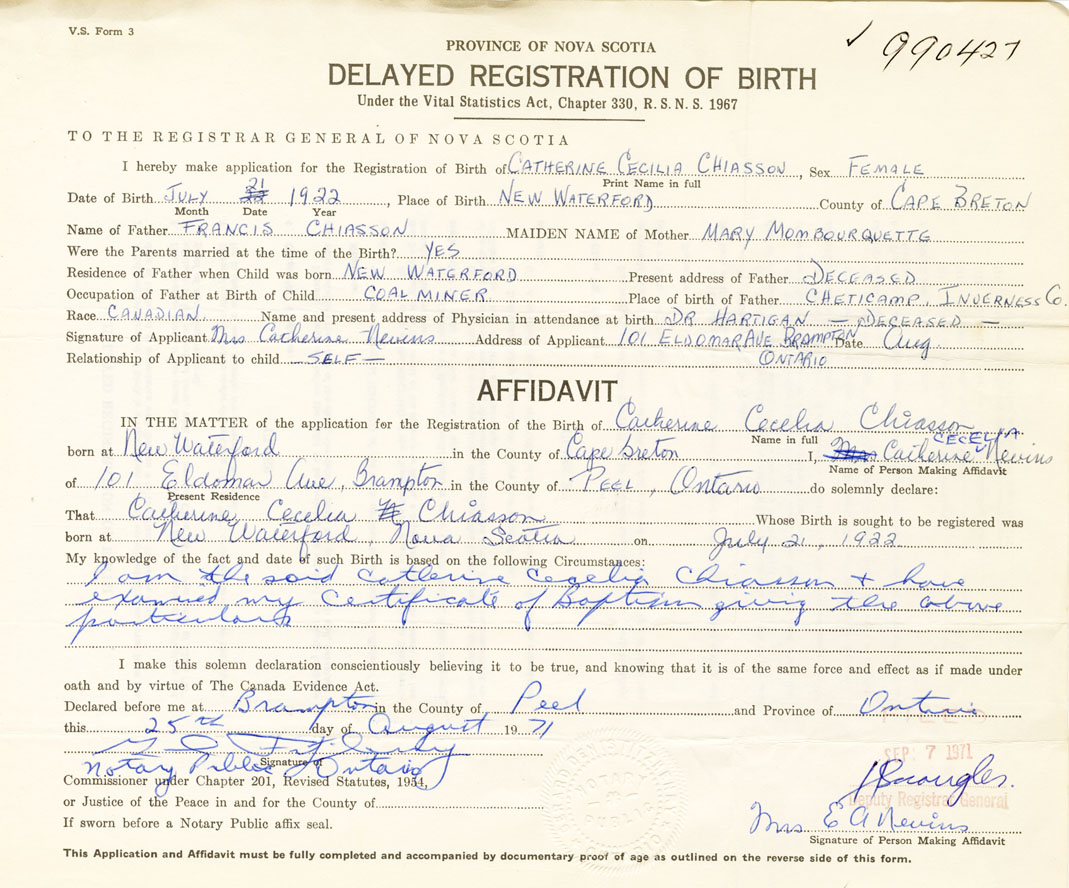 V.S. Form 3
✓ 990427
PROVINCE OF NOVA SCOTIA
DELAYED REGISTRATION OF BIRTH
Under the Vital Statistics Act, Chapter 330, R.S.N.S. 1967
TO THE REGISTRAR GENERAL OF NOVA SCOTIA
I hereby make application for the Registration of Birth of CATHERINE CECILIA CHIASSON, Sex FEMALE
Print Name in full
Date of Birth JULY 21 1922, Place of Birth NEW WATERFORD County of CAPE BRETON
Month Date Year
Name of Father FRANCIS CHIASSON MAIDEN NAME of Mother MARY MOMBOURQUETTE
Were the Parents married at the time of the Birth? YES
Residence of Father when Child was born NEW WATERFORD Present address of Father DECEASED
Occupation of Father at Birth of Child COAL MINER Place of birth of Father CHETICAMP, INVERNESS Co.
Race CANADIAN Name and present address of Physician in attendance at birth DR HARTIGAN — DECEASED —
Signature of Applicant Mrs Catherine Nevins Address of Applicant 101 ELDOMAR AVE BRAMPTON Date Aug
Relationship of Applicant to child — SELF — ONTARIO
AFFIDAVIT
IN THE MATTER of the application for the Registration of the Birth of Catherine Cecelia Chiasson
Name in full CECELIA
born at New Waterford in the County of Cape breton I, Mrs Catherine Nevins
Name of Person Making Affidavit
of 101 Eldomar Ave, Brampton in the County of PEEL, Ontario do solemnly declare:
Present Residence
That Catherine Cecelia Chiasson Whose Birth is sought to be registered was
born at New Waterford, Nova Scotia on July 21, 1922
My knowledge of the fact and date of such Birth is based on the following Circumstances:
I am the said Catherine Cecelia Chiasson + have
examined my Certificate of Baptism giving the above
particulars
I make this solemn declaration conscientiously believing it to be true, and knowing that it is of the same force and effect as if made under
oath and by virtue of The Canada Evidence Act.
Declared before me at Brampton in the County of Peel and Province of Ontario
this 25th day of August 1971
Signature of
Notary Public, Ontario
SEP 7 1971
Commissioner under Chapter 201, Revised Statutes, 1954,
or Justice of the Peace in and for the County of
Deputy Registrar General
If sworn before a Notary Public affix seal.
Mrs E A Nevins
Signature of Person Making Affidavit
This Application and Affidavit must be fully completed and accompanied by documentary proof of age as outlined on the reverse side of this form.